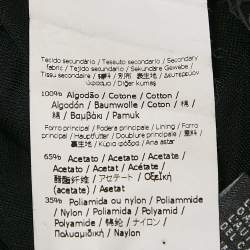 Tecido secundário / Tessuto secondario / Secondary
fabric / Tejido secundario / Sekundäre Gewebe /
Tissu secondaire / 次料 / 別布 / 表生地 / Δευτερεύον
/ Diğer kumaş
100% Algodão / Cotone / Cotton /
Algodón / Baumwolle / Coton /
棉 / 綿 / Βαμβάκι / Pamuk
Forro principal / Fodera principale / Lining / Forro
principal / Hauptfutter / Doublure principale /
裏生地 / Κύρια φόδρα / Ana astar
65% Acetato / Acetato / Acetate /
Acetato / Acetat / Acétate /
醋酯纤维 / アセテート / Οξεική
(acetate) / Asetat
35% Poliamida ou nylon / Poliammide
/ Nylon / Poliamida / Polyamid /
Polyamide / 锦纶 / ナイロン /
Πολυαμίδιο / Naylon